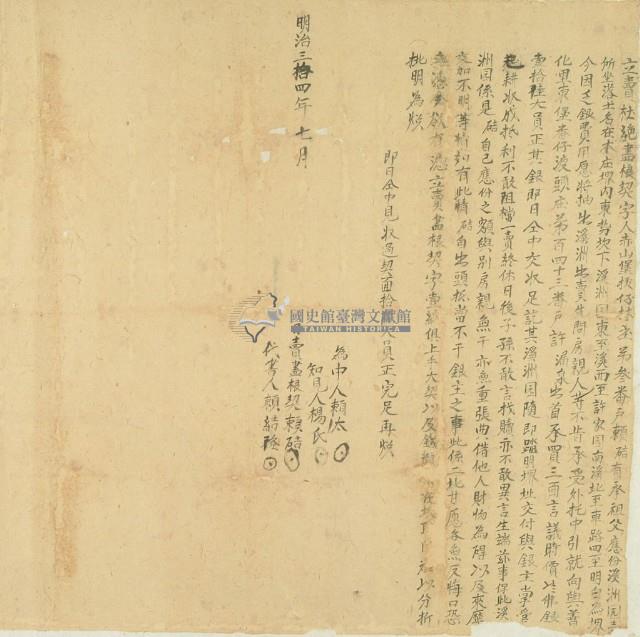 立賣杜絕盡根契字人赤山堡拔仔林庄第叁番戶賴碏有承祖父應份溪洲園壹
所坐落土名在本庄埤內東勢坎下溪洲園東至溪西至許家園南溪北至東路四至明白為界
今因乏銀費用愿將抽出溪洲出賣先問房親人等不肯承受外托中引就向與善
化里東堡番仔渡頭庄第百四十三番戶許滿來出首承買三面言議時價
壹拾陸大員正其銀即日仝中交收足訖其溪洲園隨即踏明界址交付與銀主掌管
起耕收成抵利不敢阻擋一賣終休日後子孫不敢言找贖亦不敢異言生端茲事保此溪
洲園係是碏自己應份之額與別房親無干亦無重張典借他人財物為碍以及來歷
交加不明等情如有此情碏自出頭抵當不干銀主之事此係二比甘愿各無反悔口恐
無憑立賣盡根契字壹紙俱上手大契以及
批明為炤
即日仝中見收過契面拾大員正完足再炤
為中人賴太
知見人楊氏
賣盡根契賴碏
代書人賴結
明治三拾四年七月
國史館臺灣文獻館
TAIWAN HISTORICA